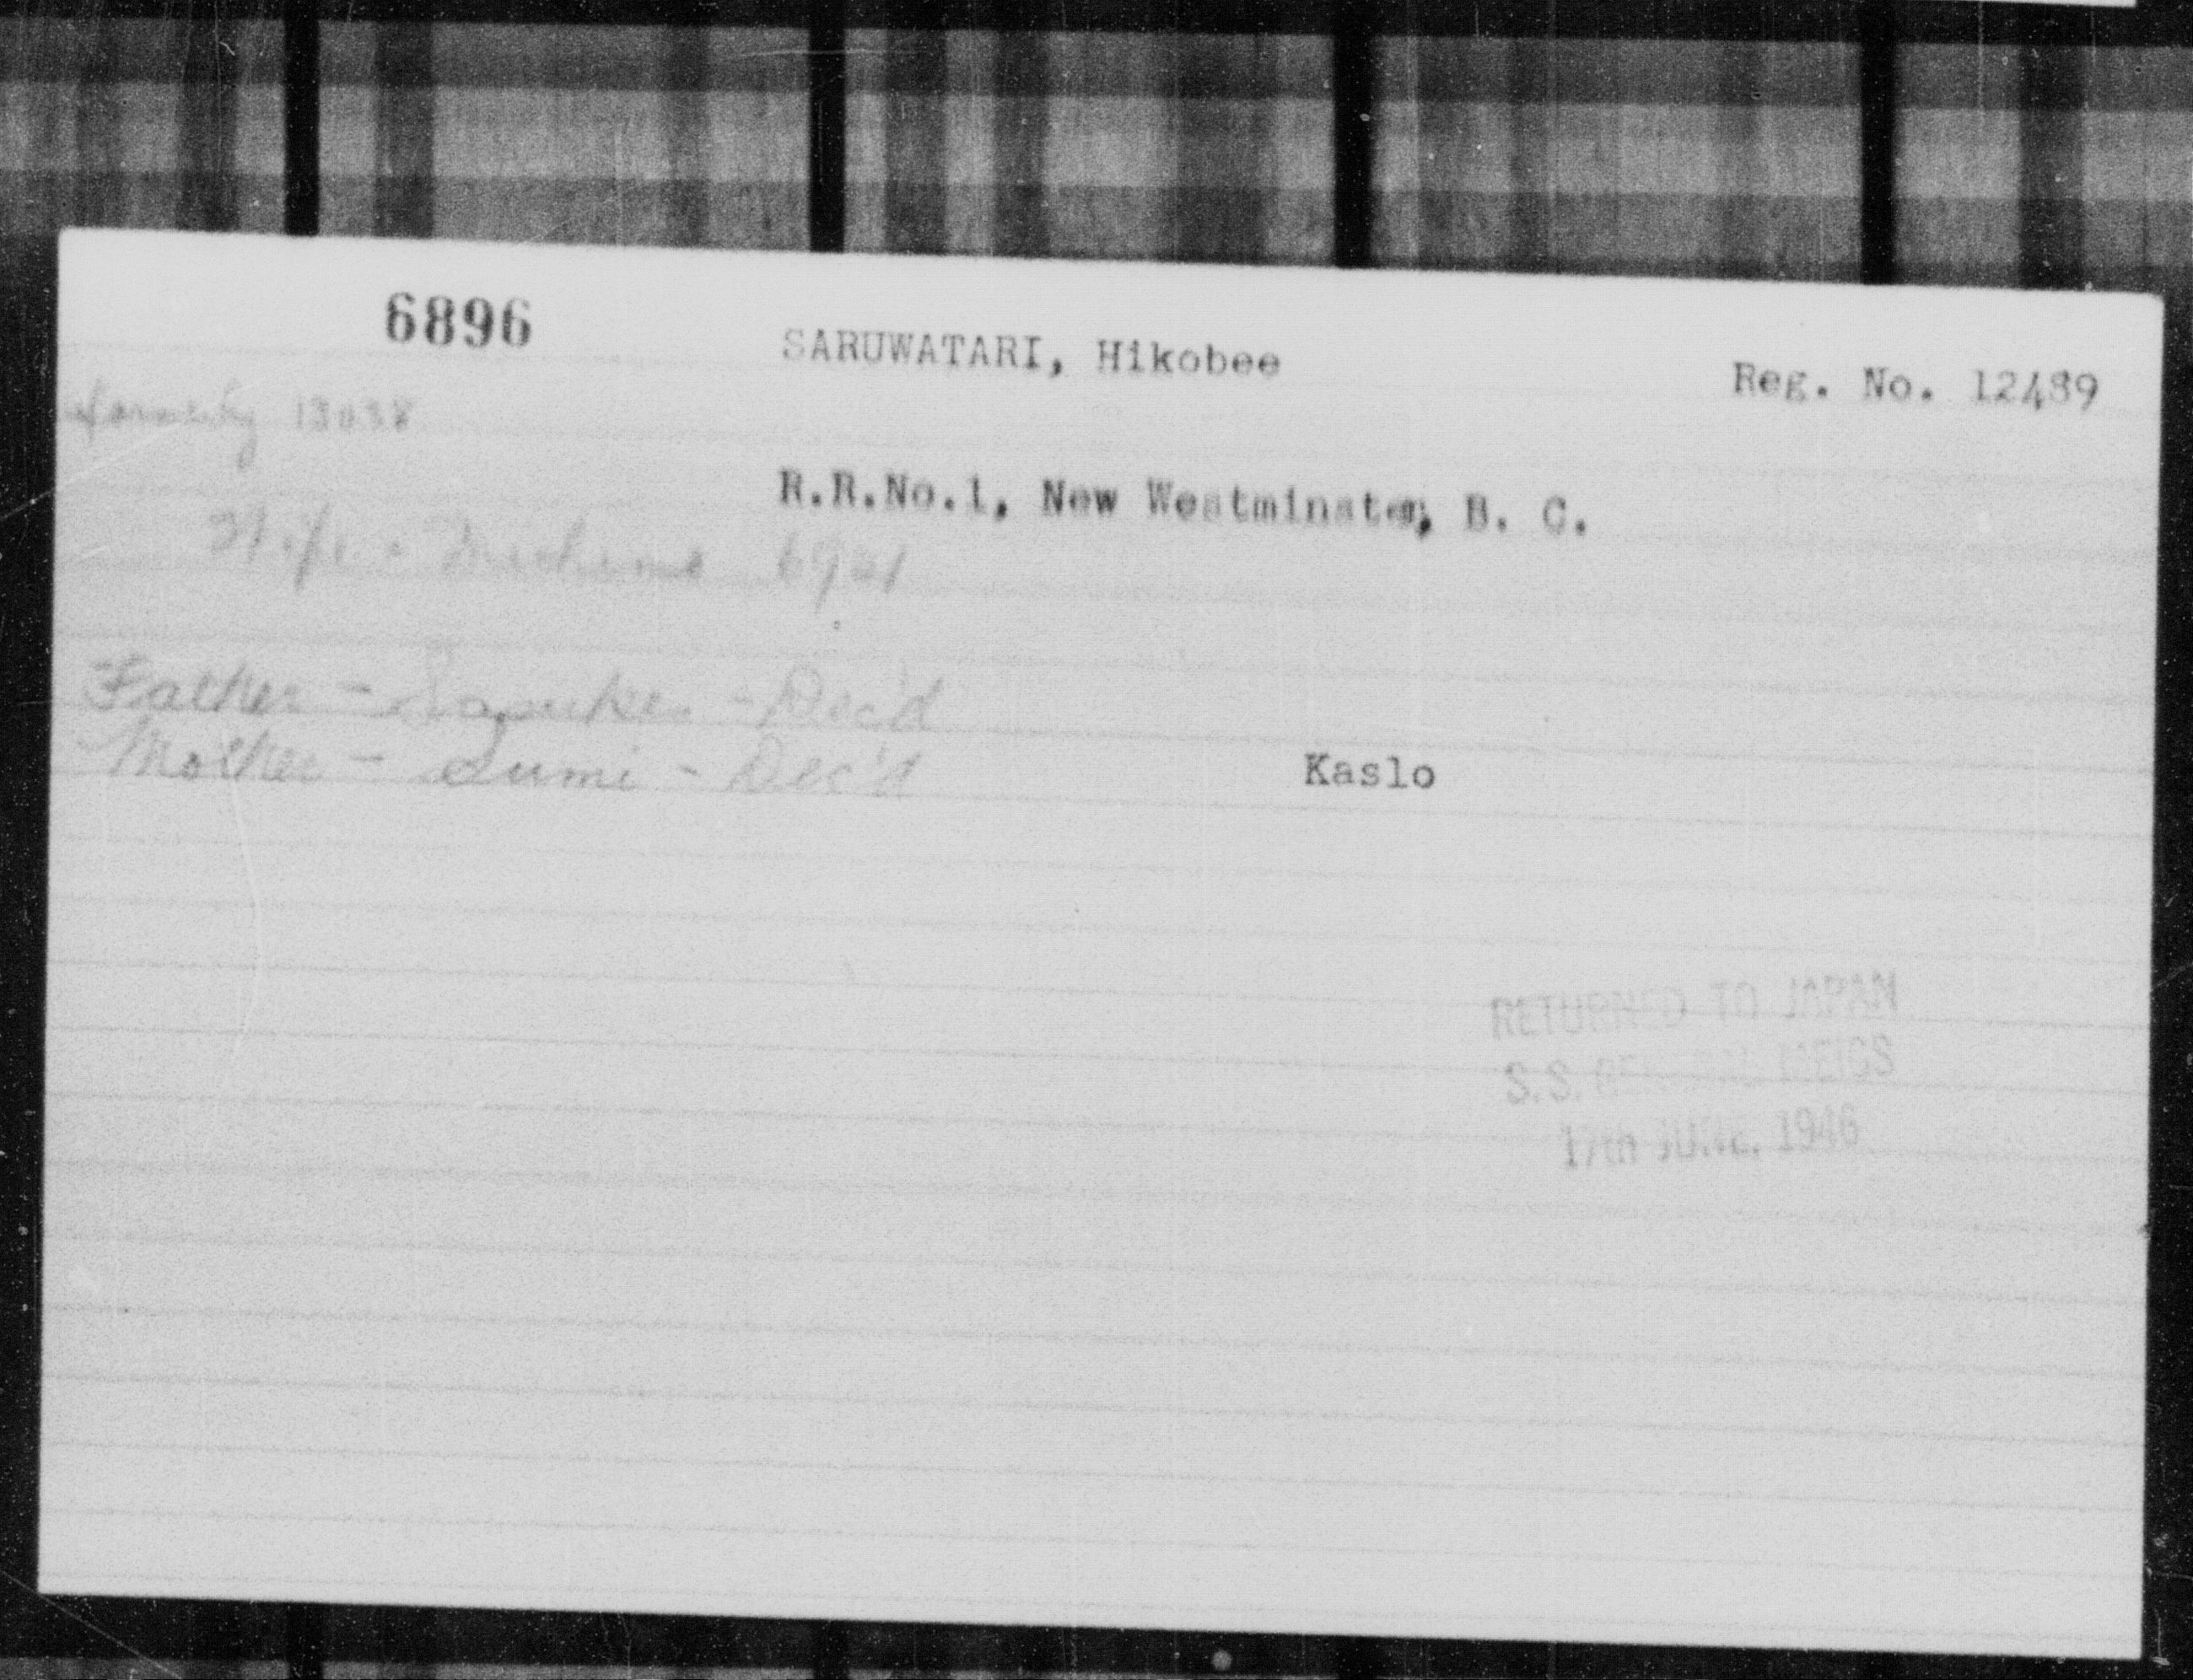 6896
SARUWATARI, Hikobee
Reg. No. 12489
formerly 13038
R.R.No.1, New Westminster, B. C.
Wife - 6941
Father - - Dec'd
Mother - Sumi - Dec'd
Kaslo
RETURNED TO JAPAN
S.S. GENERAL MEIGS
17th JUNE, 1946